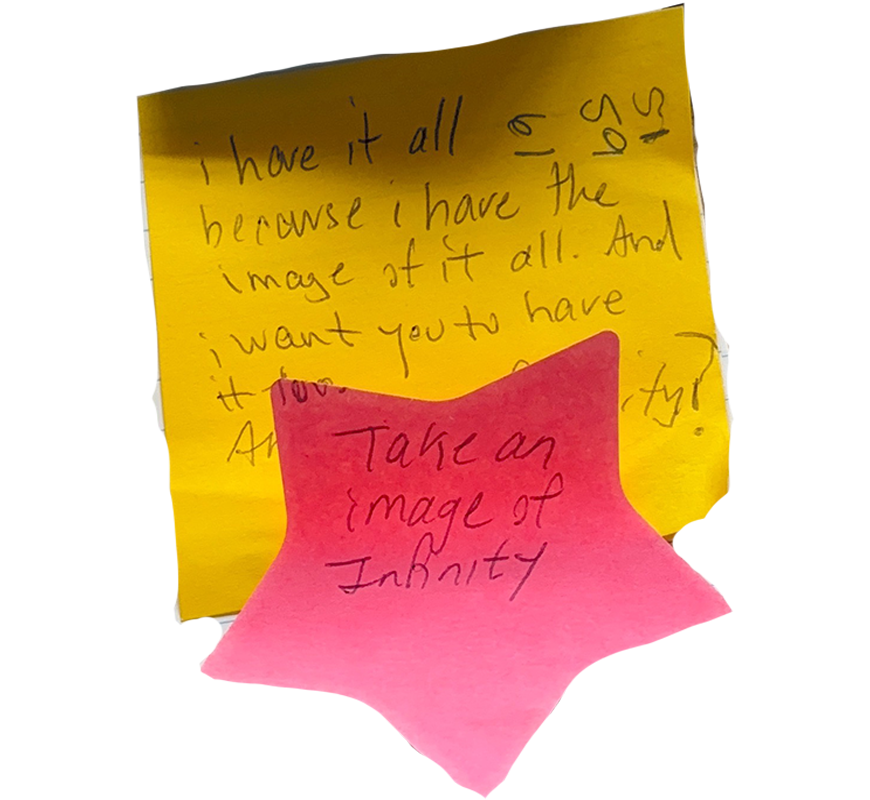 i have it all
because i have the
image of it all. And
i want you to have
it
Take an
image of
Infinity